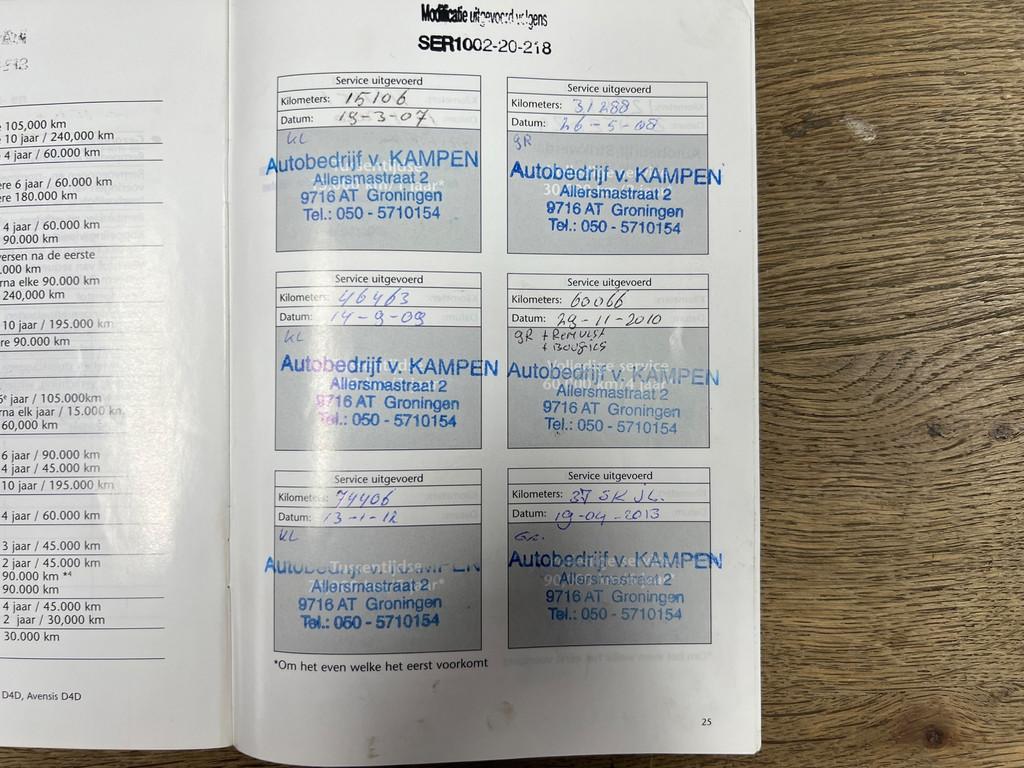 105,000 km
10 jaar / 240,000 km
4 jaar / 60.000 km
ere 6 jaar / 60.000 km
ere 180.000 km
4 jaar / 60.000 km
90.000 km
ersen na de eerste
.000 km
rna elke 90.000 km
240,000 km
10 jaar / 195.000 km
re 90.000 km
6e jaar / 105.000km
rna elk jaar / 15.000 km
60,000 km
6 jaar / 90.000 km
4 jaar / 45.000 km
10 jaar / 195.000 km
4 jaar / 60.000 km
3 jaar / 45.000 km
2 jaar / 45.000 km
90.000 km *4
90.000 km
4 jaar / 45.000 km
2 jaar / 30,000 km
30.000 km
D4D, Avensis D4D
Modificatie uitgevoerd volgens
SER1002-20-218
Service uitgevoerd
Kilometers: 15106
Datum: 19-3-07
KL
Autobedrijf v. KAMPEN
Allersmastraat 2
9716 AT Groningen
Tel.: 050 - 5710154
Service uitgevoerd
Kilometers: 31288
Datum: 26-5-08
gR
Autobedrijf v. KAMPEN
Allersmastraat 2
9716 AT Groningen
Tel.: 050 - 5710154
Service uitgevoerd
Kilometers: 46463
Datum: 14-9-09
KL
Autobedrijf v. KAMPEN
Allersmastraat 2
9716 AT Groningen
Tel.: 050 - 5710154
Service uitgevoerd
Kilometers: 60066
Datum: 29-11-2010
gR + Remvlst
+ Bougies
Volledige service
60.000 km/4 jaar*
Autobedrijf v. KAMPEN
Allersmastraat 2
9716 AT Groningen
Tel.: 050 - 5710154
Service uitgevoerd
Kilometers: 74406
Datum: 13-1-12
KL
Tussentijdse
Autobedrijf v. KAMPEN
Allersmastraat 2
9716 AT Groningen
Tel.: 050 - 5710154
Service uitgevoerd
Kilometers: 37 SK JL.
Datum: 19-04-2013
Gr.
Autobedrijf v. KAMPEN
Allersmastraat 2
9716 AT Groningen
Tel.: 050 - 5710154
*Om het even welke het eerst voorkomt
25